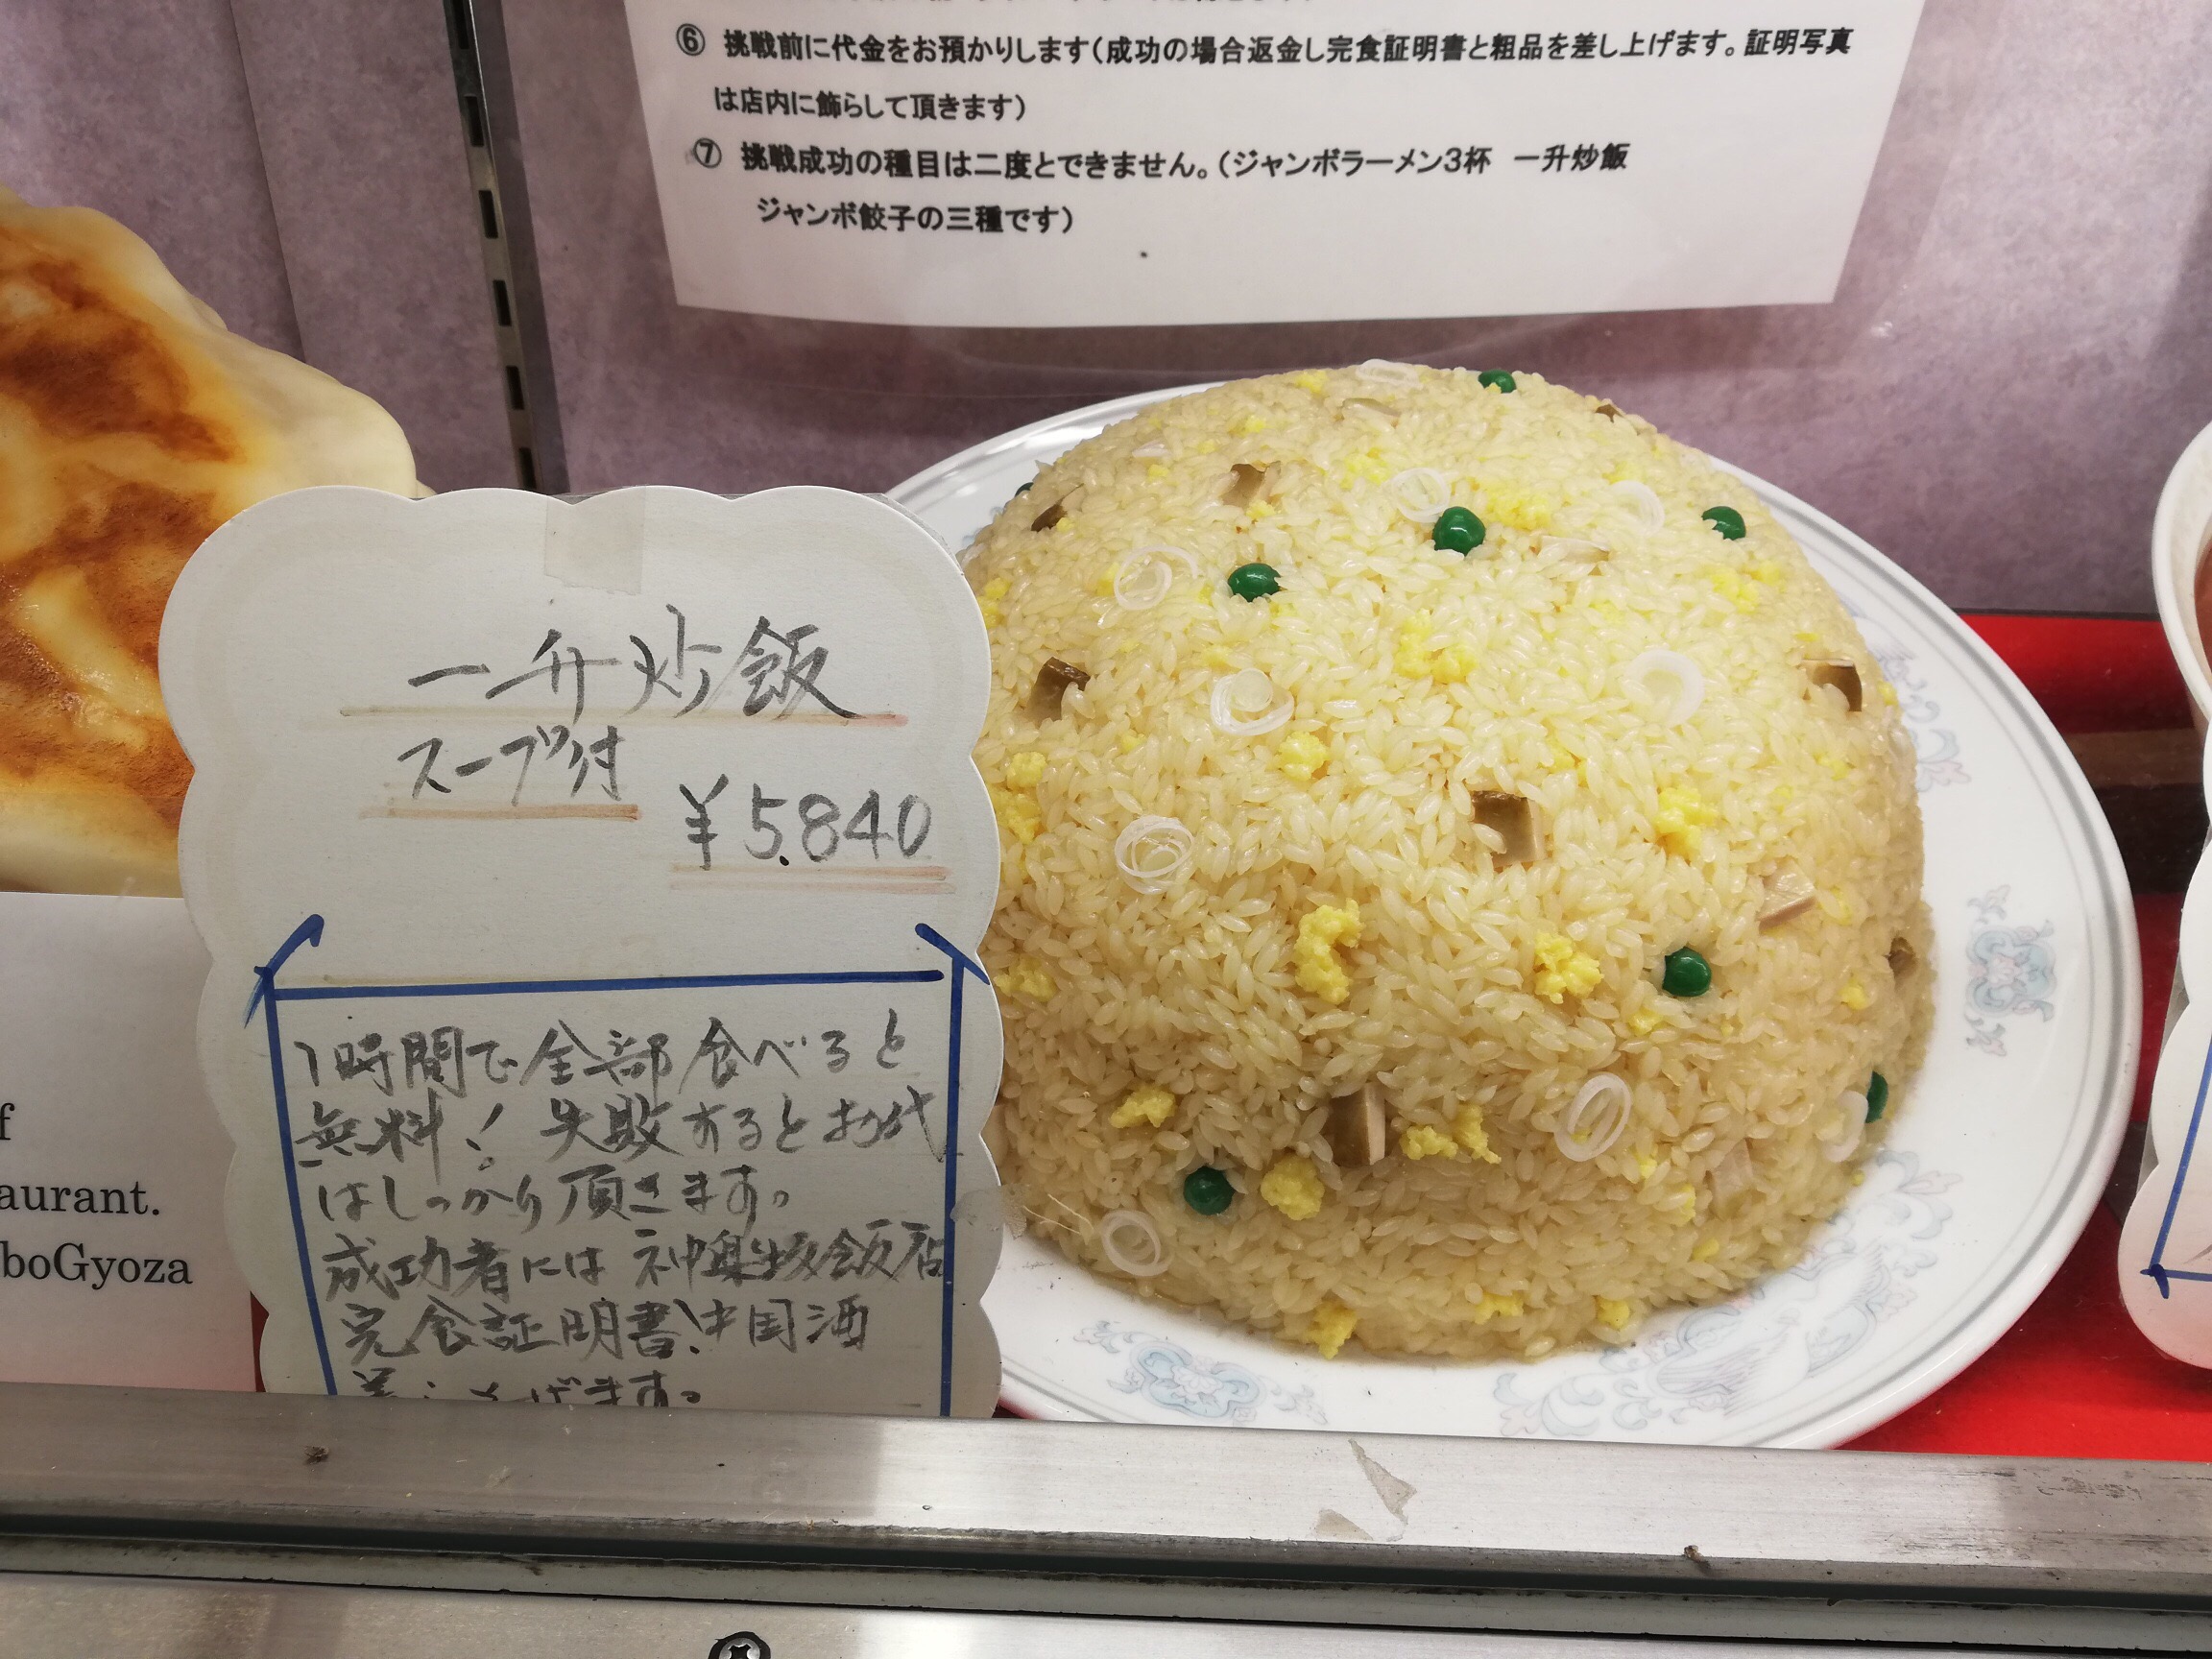 ⑥ 挑戦前に代金をお預かりします(成功の場合返金し完食証明書と粗品を差し上げます。証明写真
は店内に飾らして頂きます)
⑦ 挑戦成功の種目は二度とできません。(ジャンボラーメン3杯 一升炒飯
ジャンボ餃子の三種です)
一升炒飯
スープ付
¥5.840
1時間で全部食べると
無料! 失敗するとお代
はしっかり頂きます。
成功者には神楽坂飯店
完食証明書、中国酒
差し上げます。
aurant.
boGyoza